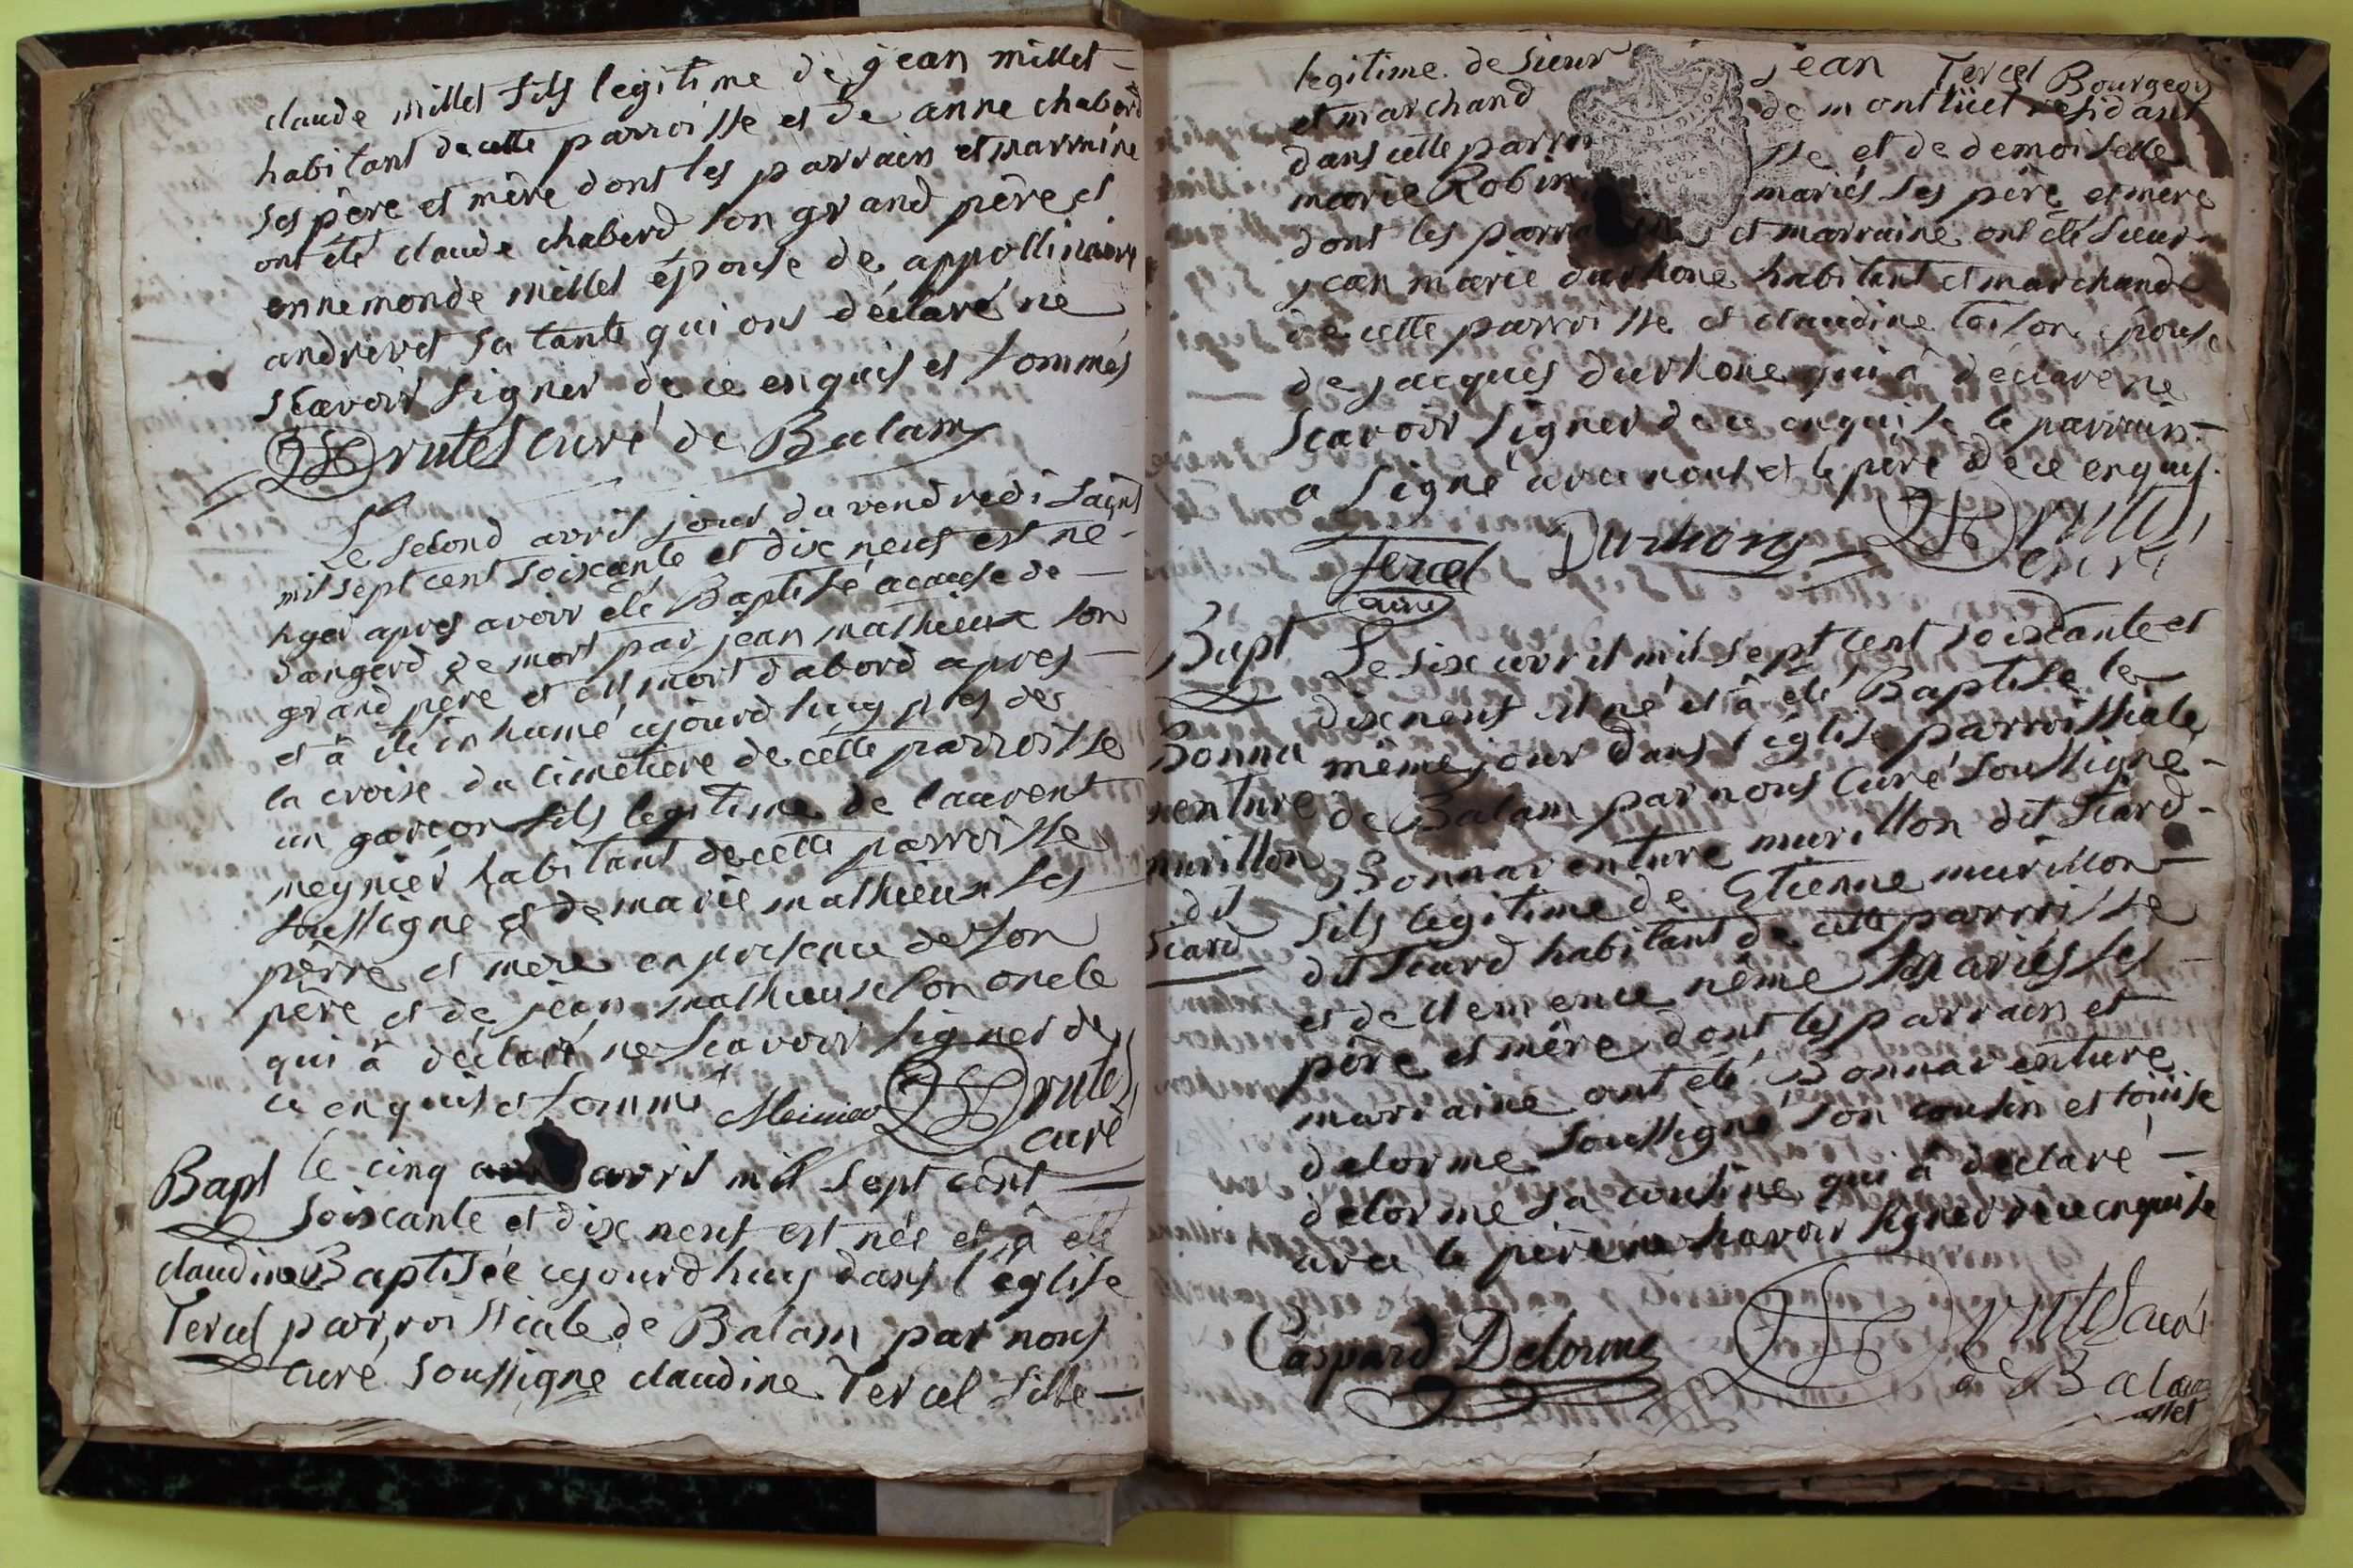 claude millet fils legitime de jean millet
habitant de cette parroisse et de anne chaberd
ses père et mère dont les parrain et marraine
ont été claude chaberd son grand père et
ennemonde millet épouse de appollinaire
andrevet sa tante qui ont déclaré ne
scavoir signer de ce enquis et sommés
Drutel curé de Balam
Le second avril jour du vendredi saint
mil sept cent soixante et dix neuf est né
hyer apres avoir été Baptisé acause de
dangerd de mort par jean mathieux son
grand père et est mort d'abord apres
et à été inhumé ajourdhuy pres de
la croise du cimetiere de cette parroisse
un garcon fils legitime de laurent
meynier habitant de cette parroisse
soussigné et de marie mathieux ses
pèrre et mère en presence de son
père et de jean mathieux son oncle
qui à déclaré ne scavoir signer de
ce enquis et sommé Meinier Drutel
curé
Bapt le cinq avril mil sept cent
soixante et dix neuf est née et à été
claudine Baptisée ajourdhuy dans l'église
Tercel parroissiale de Balam par nous
curé soussigné claudine Tercel fille
legitime de sieur jean Tercel Bourgeois
et marchand de montluel residant
dans cette parroisse et de demoiselle
marie Robin mariés ses père et mère
dont les parrain et marraine ont été sieur
jean marie durhone habitant et marchand
de cette parroisse et claudine loison épouse
de jacques durhone qui à déclaré ne
scavoir signer de ce enquise le parrain
a signé avec nous et le père de ce enquis
Tercel Durhone Drutel
ainé curé
Bapt Le six avril mil sept cent soixante et
dix neuf est né et à été Baptisé le
Bonna même jour dans l'église parroissiale
venture de Balam par nous curé soussigné
murillon Bonnaventure murillon dit siard
dit fils légitime de Etienne murillon
siard dit siard habitant de cette parroisse
et de clemence nême mariés ses
père et mère dont les parrain et
marraine ont été Bonnaventure
delorme soussigné son cousin et loüise
delorme sa cousine qui à déclaré
avec le père ne scavoir signer de ce enquise
Caspard Delorme Drutel curé
de Balam